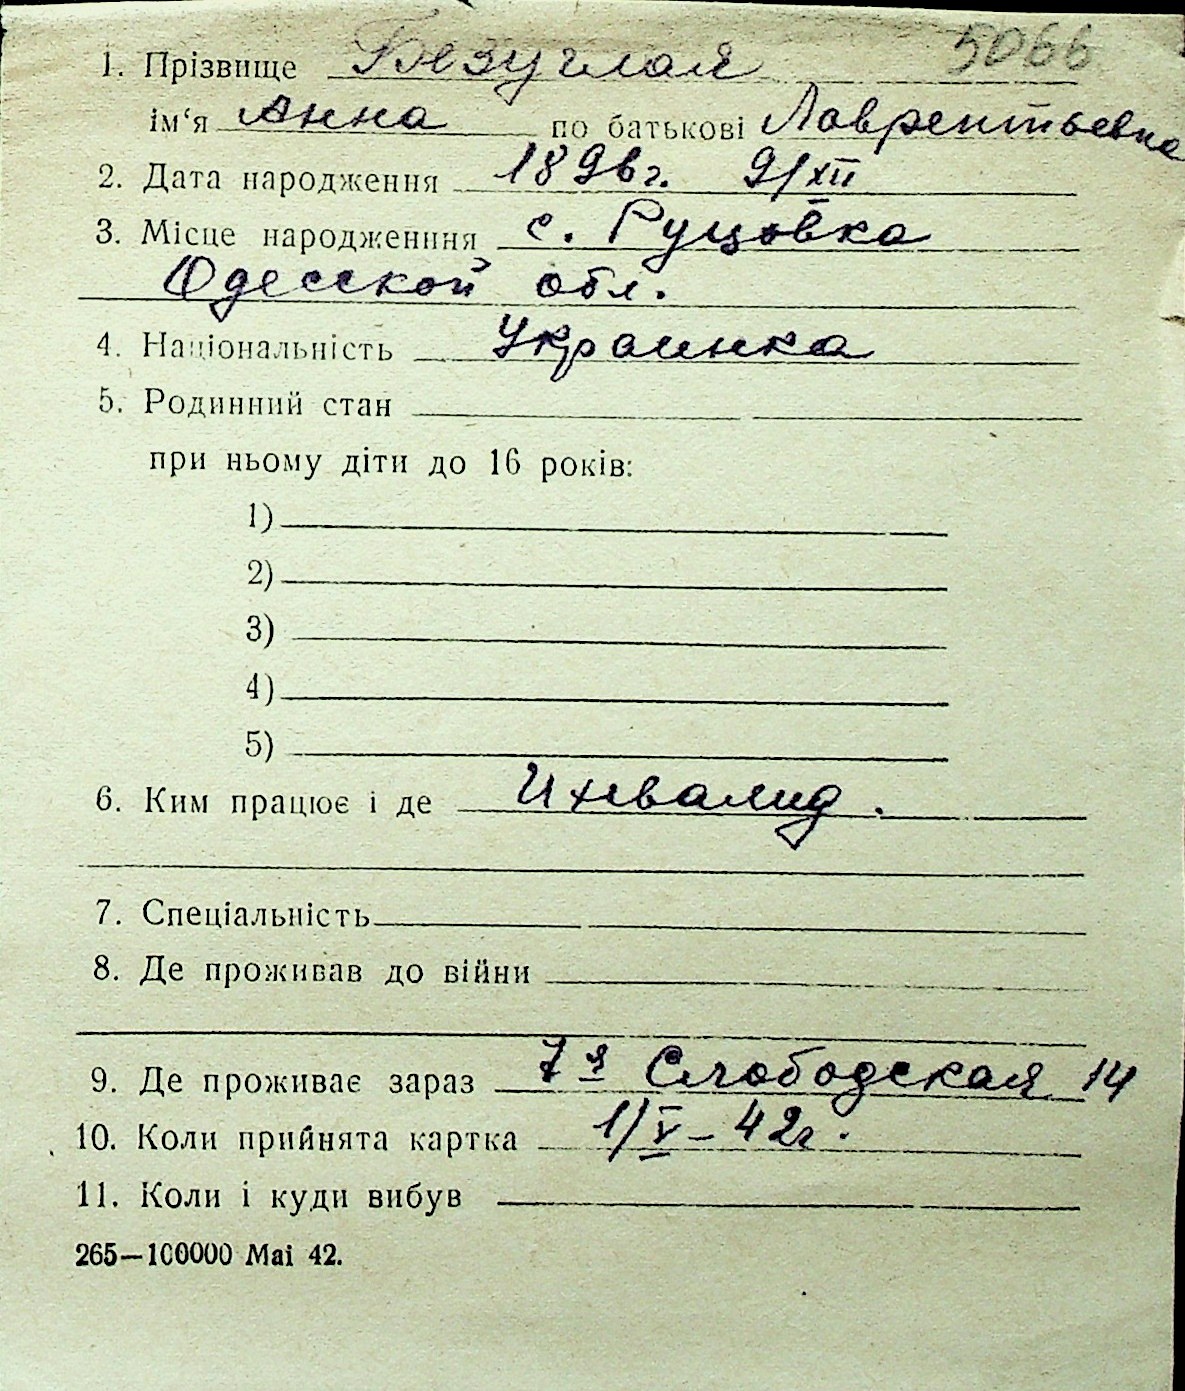 1. Прізвище Безуглая 5066
ім‘я Анна по батькові Лаврентьевна
2. Дата народження 1896г. 9/XII
3. Місце народженння с. Руцовка
Одесской обл.
4. Національність Украинка
5. Родинний стан
при ньому діти до 16 років:
1)
2)
3)
4)
5)
6. Ким працює і де Инвалид.
7. Спеціальність
8. Де проживав до війни
9. Де проживає зараз 7я Слободская 14
10. Коли прийнята картка 1/V-42г.
11. Коли і куди вибув
265—100000 Mai 42.